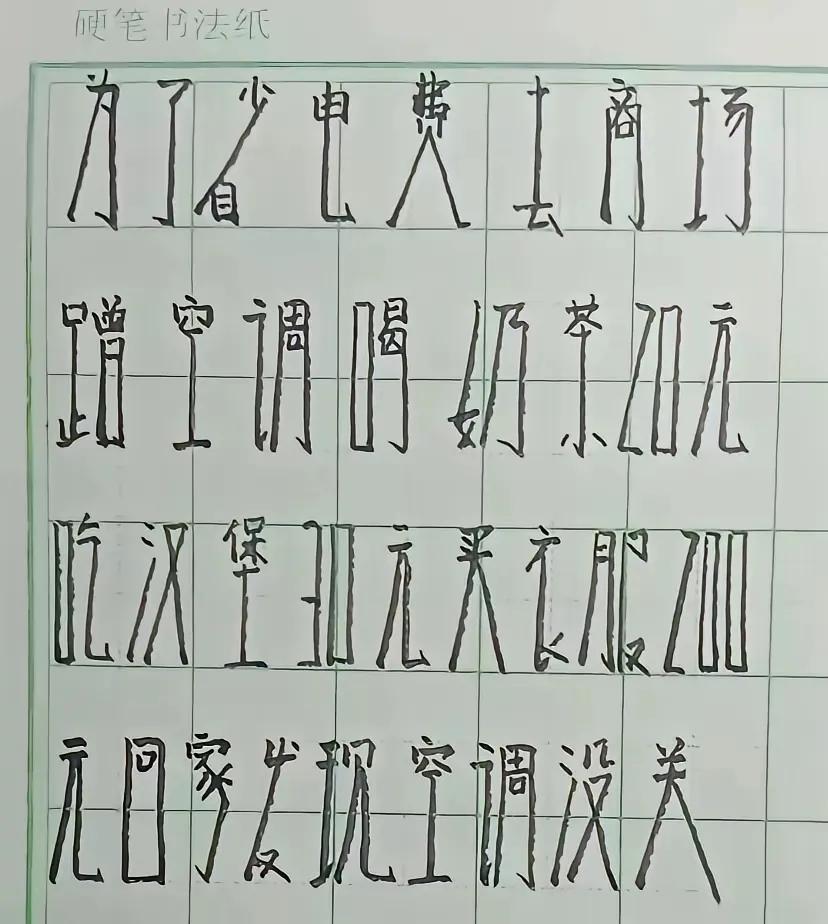 硬笔书法纸
为了省电费去商场
蹭空调喝奶茶20元
吃汉堡30元买衣服200
元回家发现空调没关